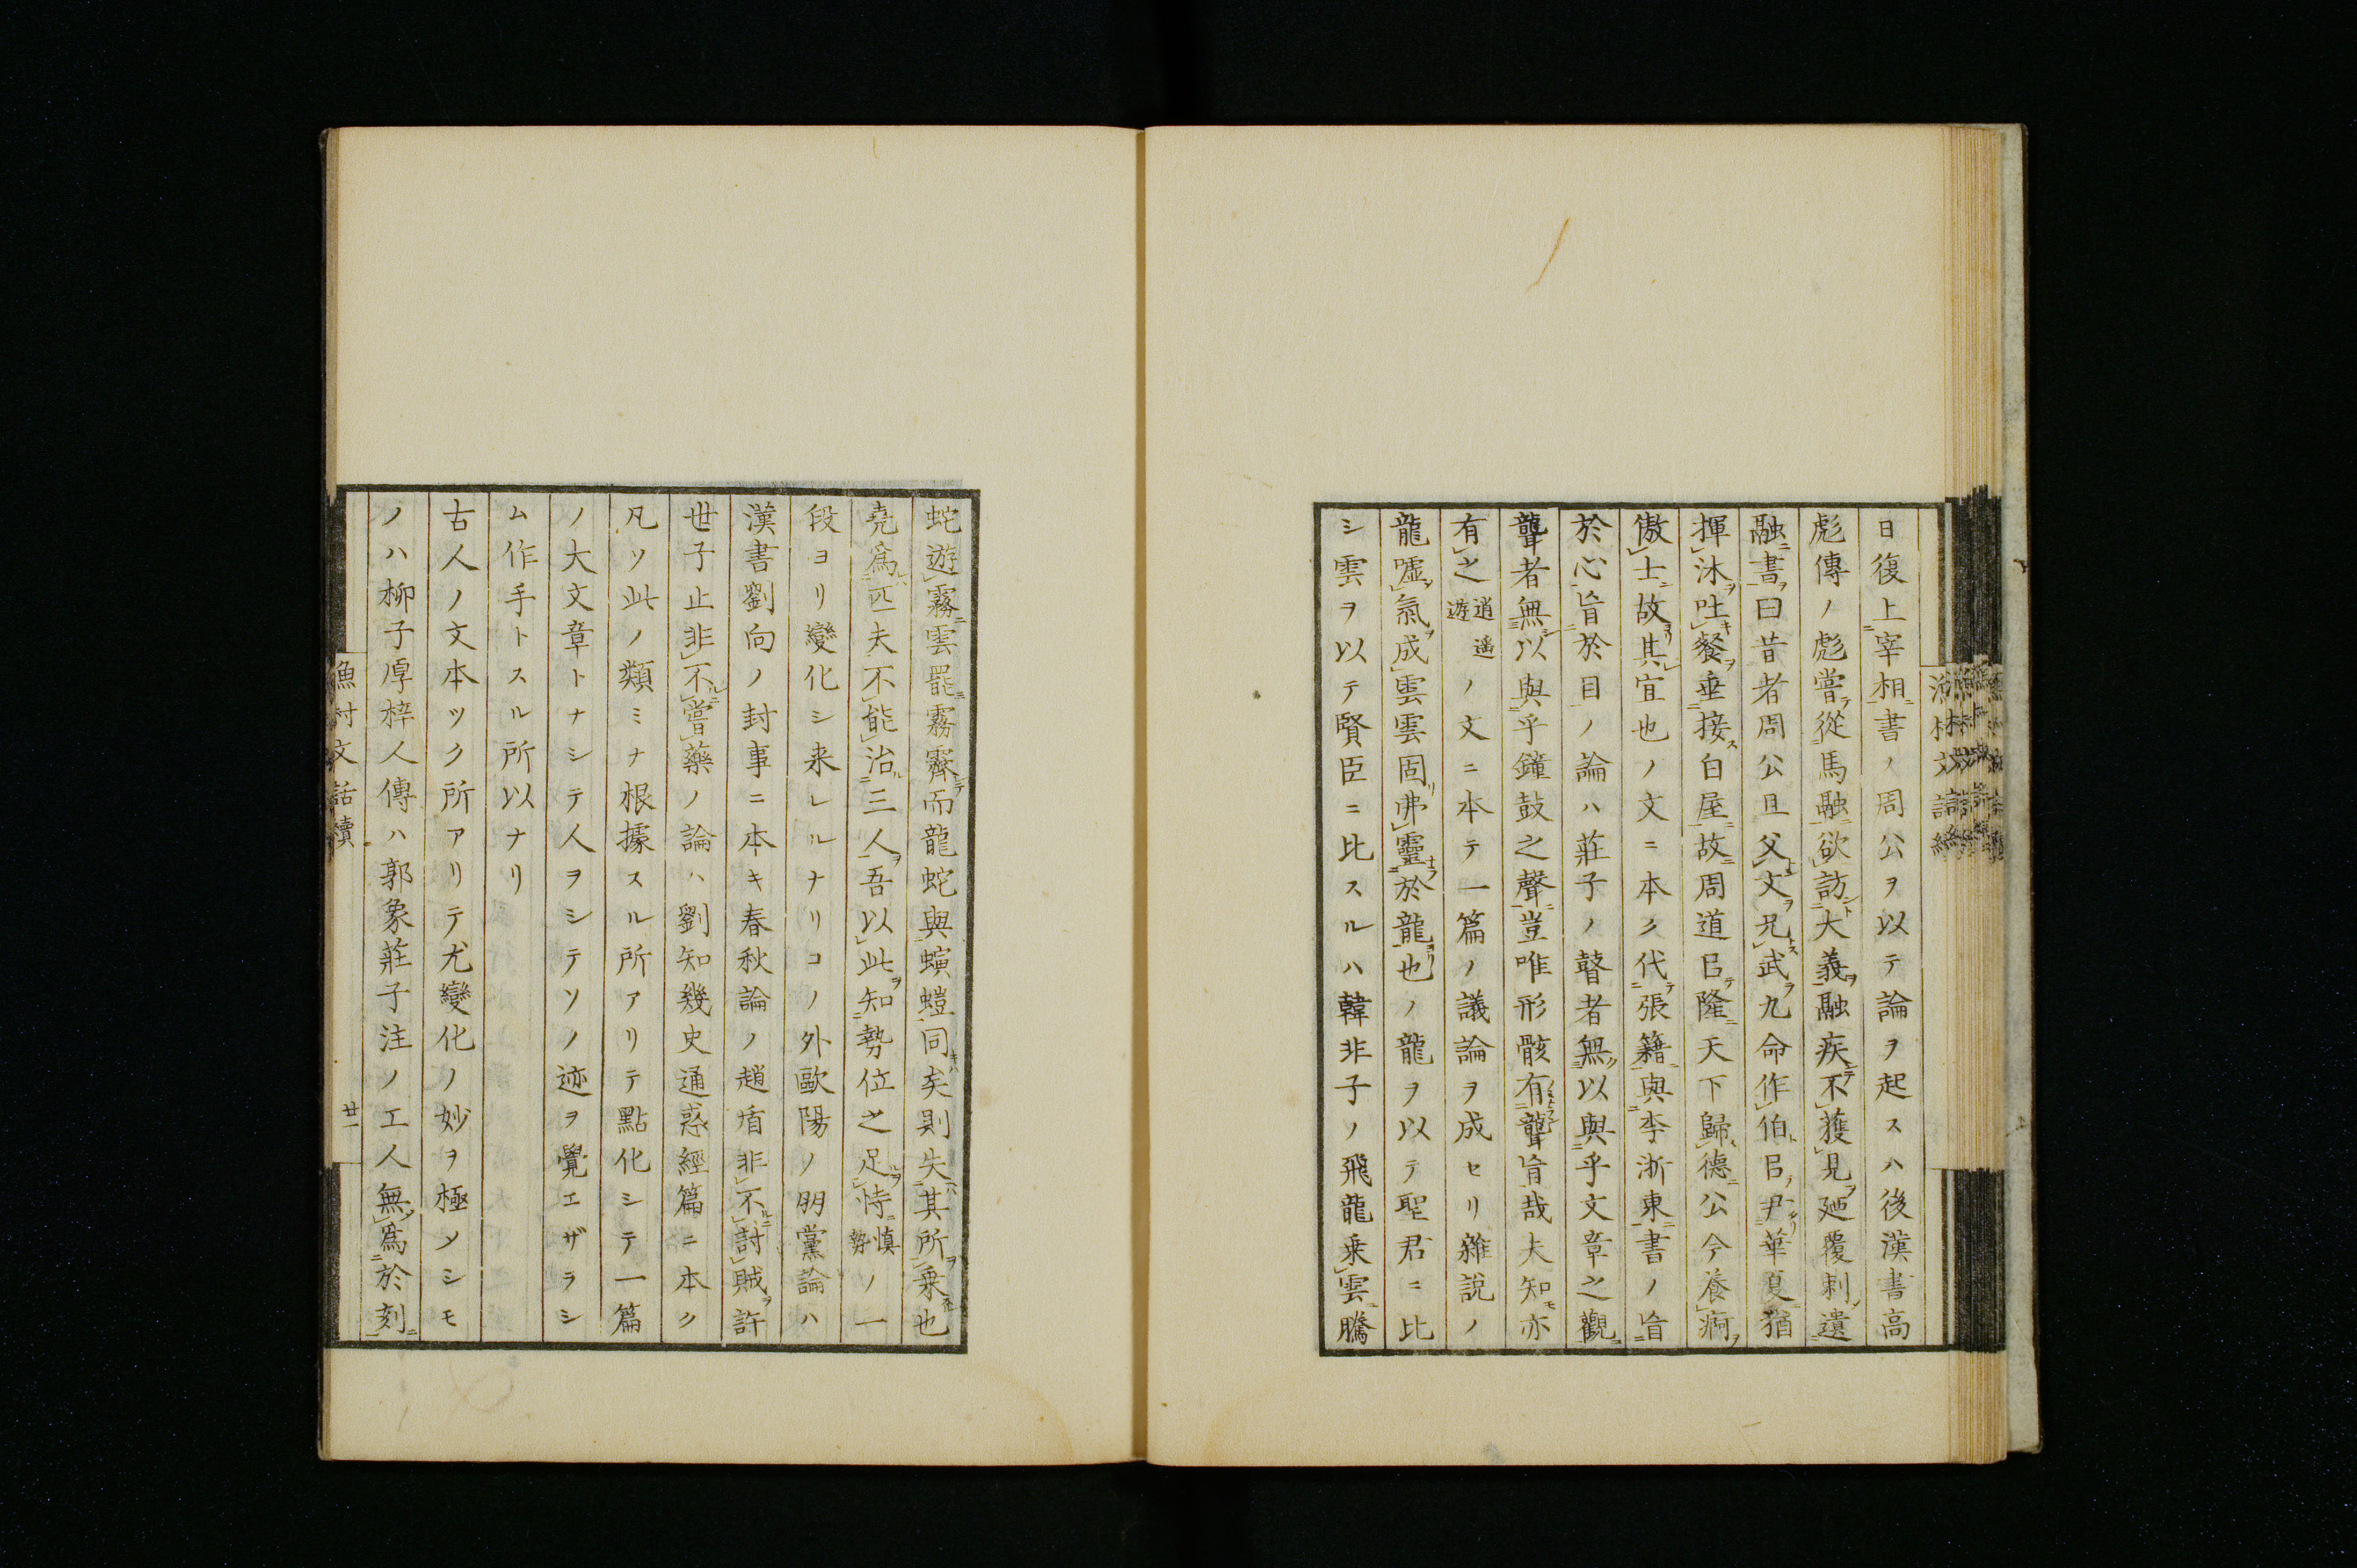 日復上宰相書ノ周公ヲ以テ論ヲ起スハ後漢書高
彪傳ノ彪嘗從馬融欲訪大義融疾不獲見廼覆刺遺
融書曰昔者周公旦父文兄武九命作伯㠯尹華夏猶
揮沐吐餐垂接白屋故周道㠯隆天下歸德公今養痾
傲士故其宜也ノ文ニ本ク代張籍與李浙東書ノ盲
於心盲於目ノ論ハ莊子ノ瞽者無以與乎文章之觀
聾者無以與乎鐘鼓之聲豈唯形骸有聾盲哉夫知亦
有之逍遥遊ノ文ニ本テ一篇ノ議論ヲ成セリ雜説ノ
龍嘘氣成雲雲固弗靈於龍也ノ龍ヲ以テ聖君ニ比
シ雲ヲ以テ賢臣ニ比スルハ韓非子ノ飛龍乗雲騰
蛇遊霧雲罷霧霽而龍蛇與螾螘同矣則失其所乗也
堯爲匹夫不能治三人吾以此知勢位之足恃慎勢ノ一
段ヨリ變化シ来レルナリコノ外歐陽ノ朋黨論ハ
漢書劉向ノ封事ニ本キ春秋論ノ趙盾非不討賊許
世子止非不嘗藥ノ論ハ劉知幾史通惑經篇ニ本ク
凡ソ此ノ類ミナ根據スル所アリテ點化シテ一篇
ノ大文章トナシテ人ヲシテソノ迹ヲ覺エザラシ
ム作手トスル所以ナリ
古人ノ文本ツク所アリテ尤變化ノ妙ヲ極メシモ
ノハ柳子厚梓人傳ハ郭象莊子注ノ工人無爲於刻
漁村文話續
廿一